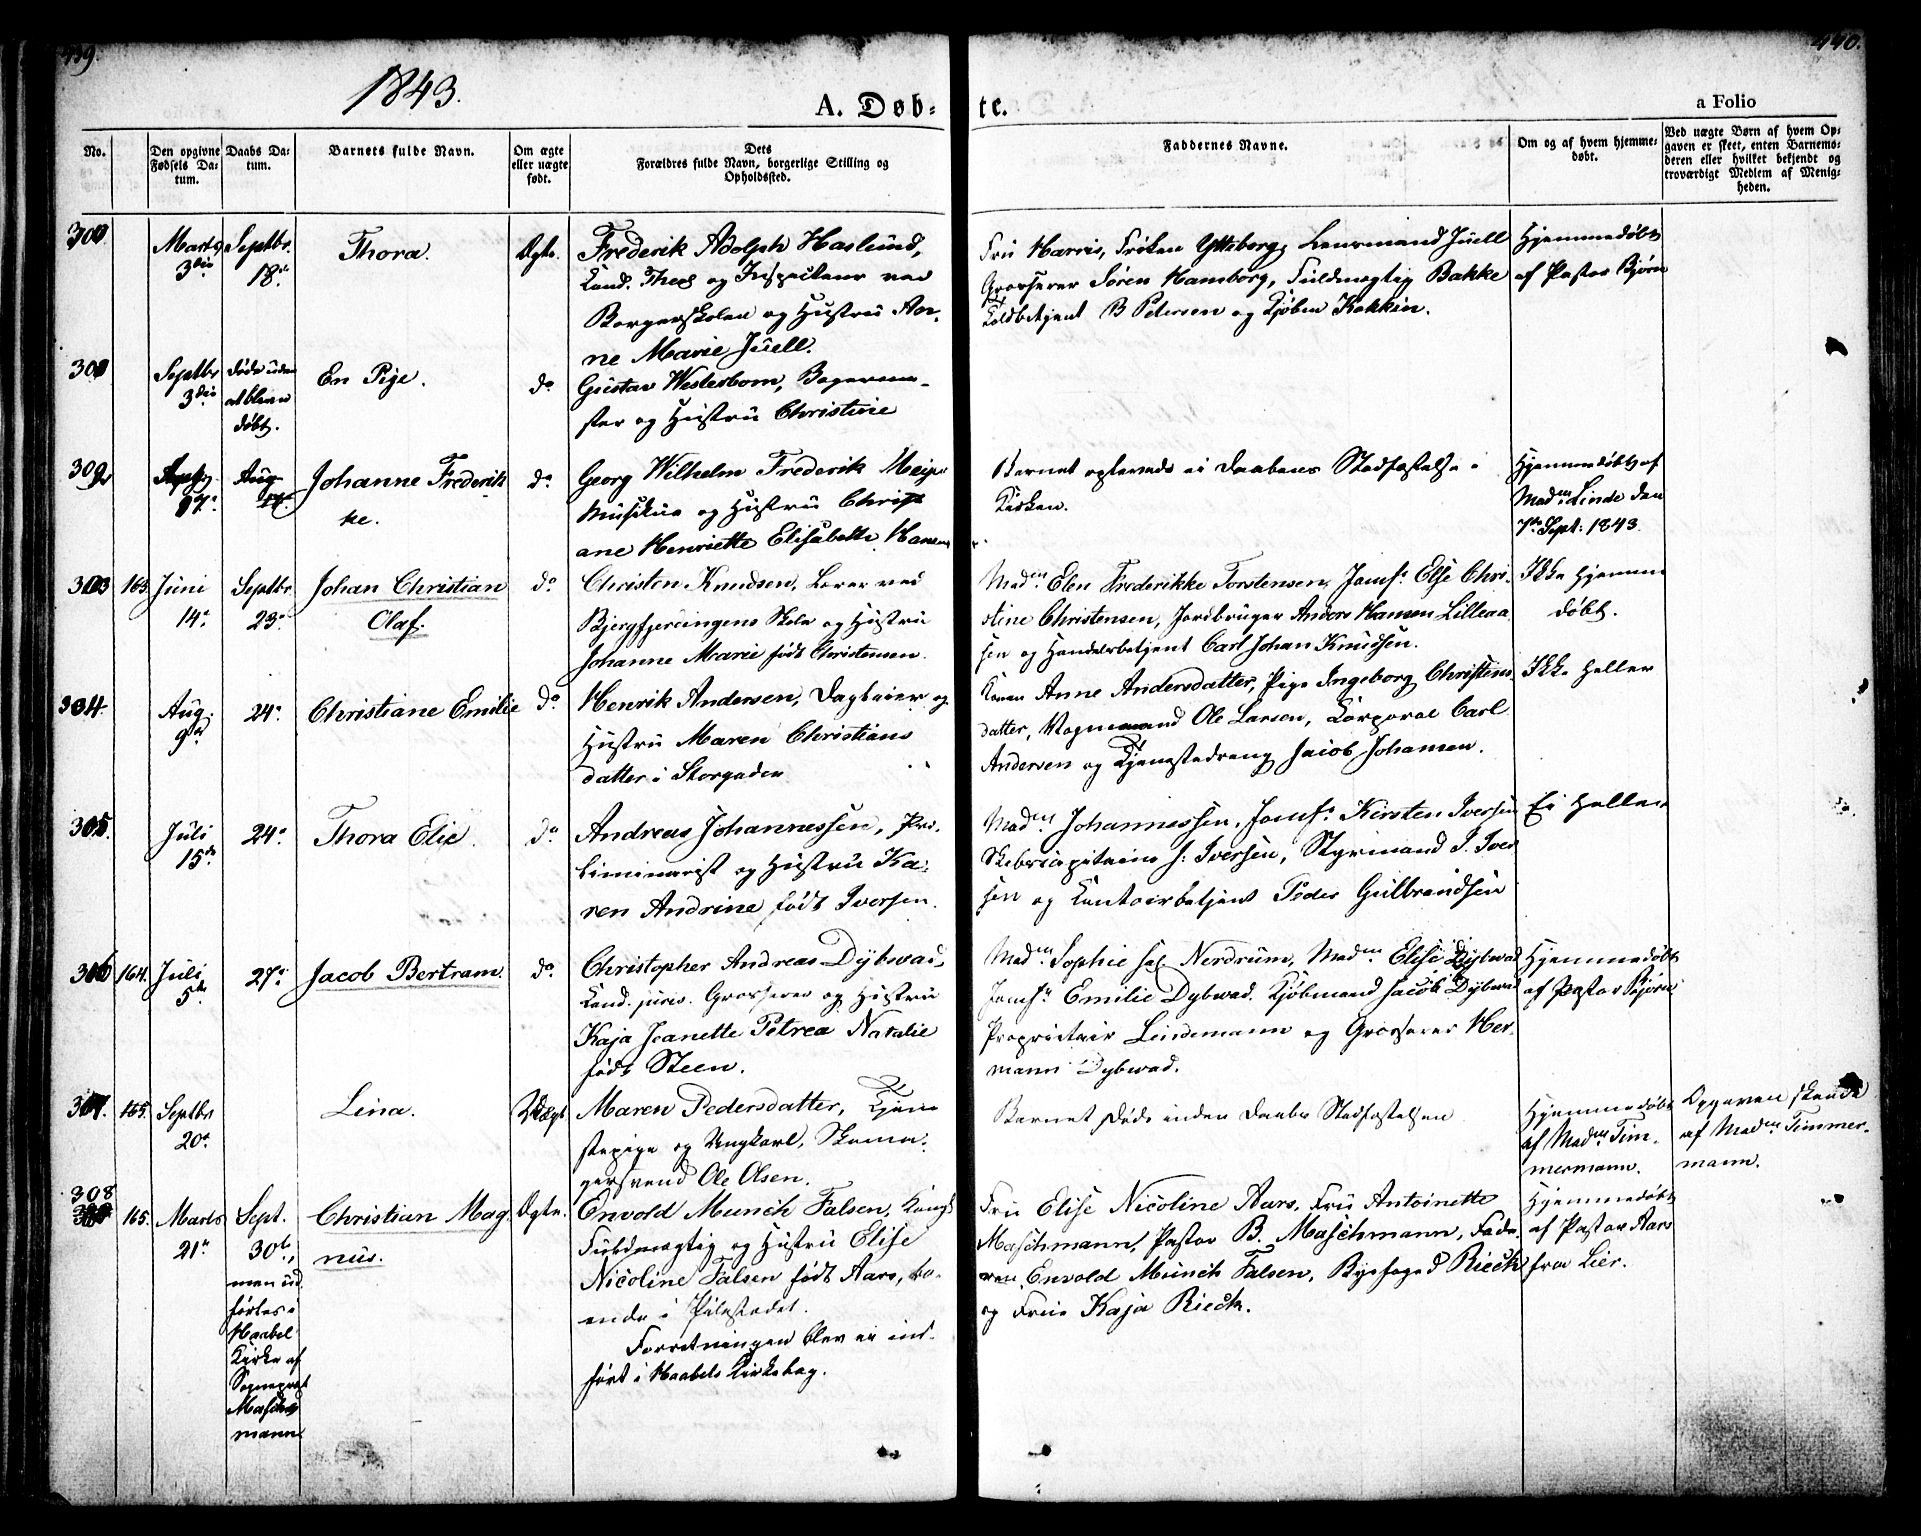 439.
440.
1843.
A. Døb-
te.
a Folio
No.
Den opgivne Fødsels Datum.
Daabs Datum.
Barnets fulde Navn.
Om ægte eller uægte født.
Dets Forældres fulde Navn, borgerlige Stilling og Opholdssted.
Faddernes Navne.
Om og af hvem hjemmedøbt.
Ved uægte Børn af hvem Opgaven er skeet, enten Barnemoderen eller hvilket bekjendt og troværdigt Medlem af Menigheden.
300
Marts 3die
Septbr. 18de
Thora.
Ægte.
Frederik Adolph Haslund,
Cand. Theol og Inspecteur ved
Borgerskolen og Hustru An-
ne Marie Juell.
Fru Harris, Frøken Ytteborg, Lensmand Juell
Grosserer Søren Hamborg, Fuldmægtig Bakke
Toldbetjent B Petersen og
Hjemmedøbt
af Pastor Bjørn
Septbr 3die
døde uden
at blive
døbt.
En Pige.
do
Gustav Westerbom, Bagerme-
ster og Hustru Christine
302
Aug
Johanne Frederik
ke.
do
Georg Wilhelm Frederik
Musikus og Hustru Christ
ane Henriette Elisabeth Hansen
Barnet oplevede ei Daabens Stadfæstelse i
Kirken.
Hjemmedøbt af
Madm Linde den
7de Sept: 1843.
303
163.
Juni
14de
Septbr
23de
Johan Christian
Olaf.
do
Christen Knudsen, Lærer ved
Bjergfjerdingens Skole og Hustru
Johanne Marie født Christensen.
Madm. Elen Frederikke Torstensen, Jomfr. Else Chri-
stine Christensen, Jordbruger Anders Hansen Lilleaa
sen og Handelsbetjent Carl Johan Knudsen.
Ikke hjemme
døbt.
304.
Aug.
9de
24de
Christiane Emilie
do
Henrik Andersen, Dagleier og
Hustru Maren Christians
datter i Storgaden
Konen Anne Andersdatter, Pige Ingeborg Christians
datter, Vognmand Ole Larsen, Corporal Carl
Andersen og Tjenestedreng Jacob Johansen.
Ikke heller
305.
Juli
15de
24de
Thora Elie.
do
Andreas Johannessen, Præ-
liminarist og Hustru Ka-
ren Andrine født Iversen.
Madm. Johannessen, Jomfr. Kirsten Iversen
Skibscapitaine J. Iversen, Styrmand I. Iver
sen og Contoirbetjent Peder Gulbrandsen
Ei heller
306
164.
Juli
5de
27de
Jacob Bertram.
do
Christopher Andreas Dybwad,
Cand. juris. Grosserer og Hustru
Kaja Jeanette Petrea Natalie
født Steen.
Madm Sophie sal. Nerdrum, Madm Elise Dybwad
Jomfr Emilie Dybwad. Kjøbmand Jacob Dybwad
Proprietair Lindemann og Grosserer Her-
mann Dybwad.
Hjemmedøbt
af Pastor Bjørn
307.
165.
Septbr
20de
Lina.
Uægt.
Maren Pedersdatter, Tjene
stepige og Ungkarl, Skoma-
gersvend Ole Olsen.
Barnet døde inden Daabs Stadfæstelsen
Hjemmedøbt
af Madm Tim-
mermann.
Opgaven skeede
af Madm Timmer-
mann.
308
165.
Marts
21de
Sept.
30te,
men ud
førtes i
Haabøl
Kirke af
Sognepræst
Masch
mann.
Christian Mag
nus.
Ægte.
Envold Munch Falsen, Kongl
Fuldmægtig og Hustru Elise
Nicoline Falsen født Aars, bo-
ende i Pilestædet.
Forretningen blev ei ind-
ført i Haabøls Kirkebog.
Fru Elise Nicoline Aars, Fru Antoinette
Maschmann, Pastor B. Maschmann, Fade-
ren Envold Munch Falsen, Byefoged Rieck
og Frue Kaja Rieck.
Hjemmedøbt
af Pastor Aars
fra Lier.